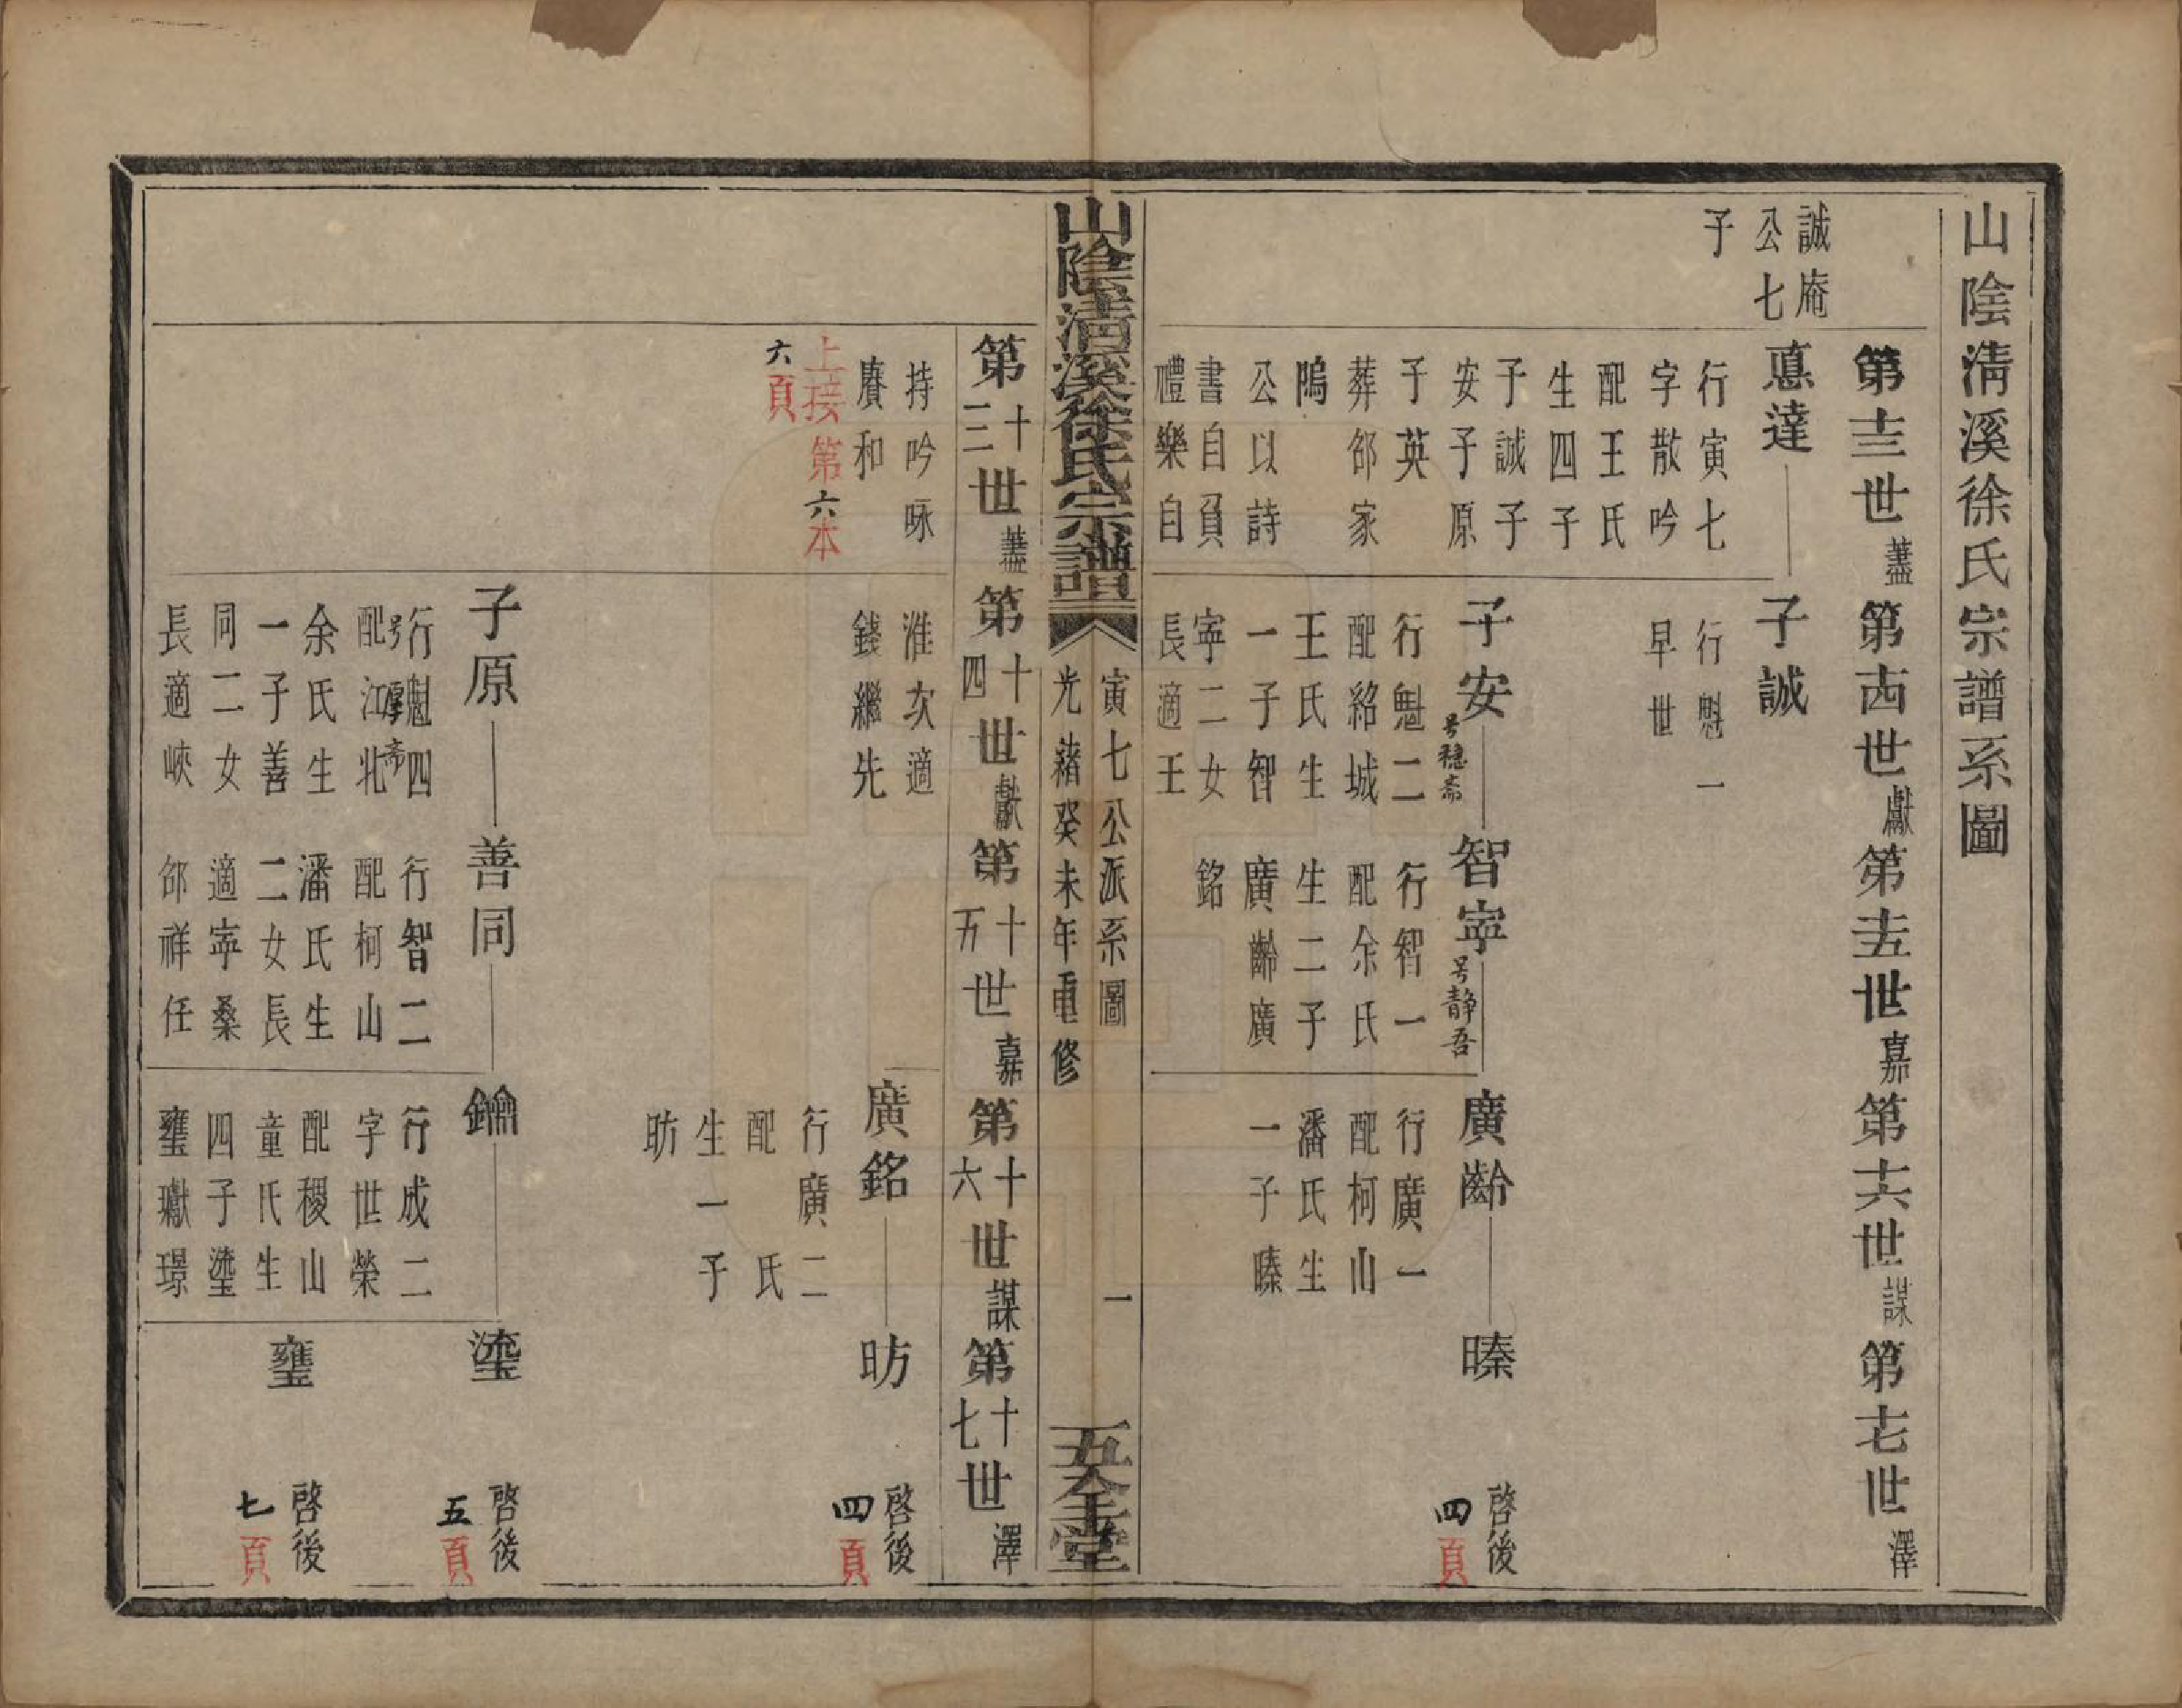 山陰清溪徐氏宗譜系圖
第十三世 藎 第十四世 獻 第十五世 嘉 第十六世 謀 第十七世 澤
誠庵
公七
子
惪達
行寅七
字散吟
配王氏
生四子
子誠子
安子原
子英
葬郤家
隖
公以詩
書自負
禮樂自
子誠
行魁一
早世
子安
号穏斋
行魁二
配紹城
王氏生
一子智
寧二女
長適王
智寧
号静吾
行智一
配余氏
生二子
廣齡廣
銘
廣齡
行廣一
配柯山
潘氏生
一子㬜
㬜
啓後
四頁
山陰清溪徐氏宗譜
寅七公派系圖
光緒癸未年重修
一
五全堂
第十三世 藎 第十四世 獻 第十五世 嘉 第十六世 謀 第十七世 澤
持吟咏
賡和
上接第六本
六頁
淮次適
錢繼先
廣銘
行廣二
配 氏
生一子
昉
昉
啓後
四頁
子原
行魁四
号厚斋
配江北
余氏生
一子善
同二女
長適峽
善同
行智二
配柯山
潘氏生
二女長
適寧桑
郤祥任
鑰
行成二
字世榮
配稷山
童氏生
四子瑬
璽瓛璟
瑬
啓後
五頁
璽
啓後
七頁